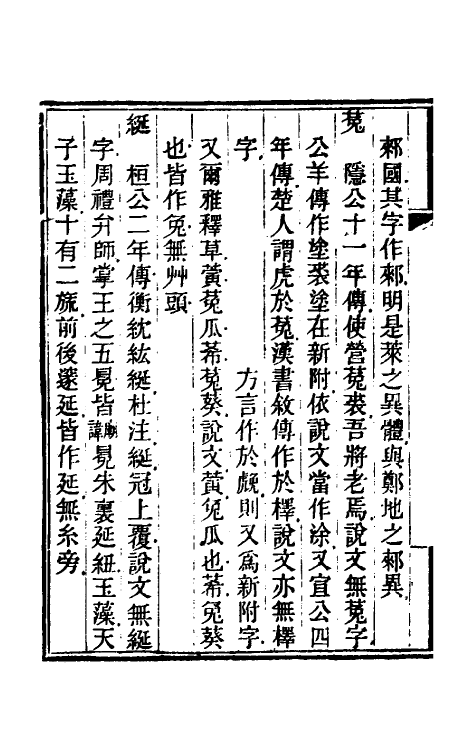 郲國其字作郲明是萊之異體與鄭地之郲異
菟　隱公十一年傳使營菟裘吾將老焉說文無菟字
公羊傳作塗裘塗在新附依說文當作涂又宣公四
年傳楚人謂虎於菟漢書敘傳作於檡說文亦無檡
字　方言作於䖘則又爲新附字
又爾雅釋草黃菟瓜莃菟葵說文黃兔瓜也莃兔葵
也皆作兔無艸頭
綖　桓公二年傳衡紞紘綖杜注綖冠上覆說文無綖
字周禮弁師掌王之五冕皆廟諱冕朱裏延紐玉藻天
子玉藻十有二旒前後邃延皆作延無糸旁